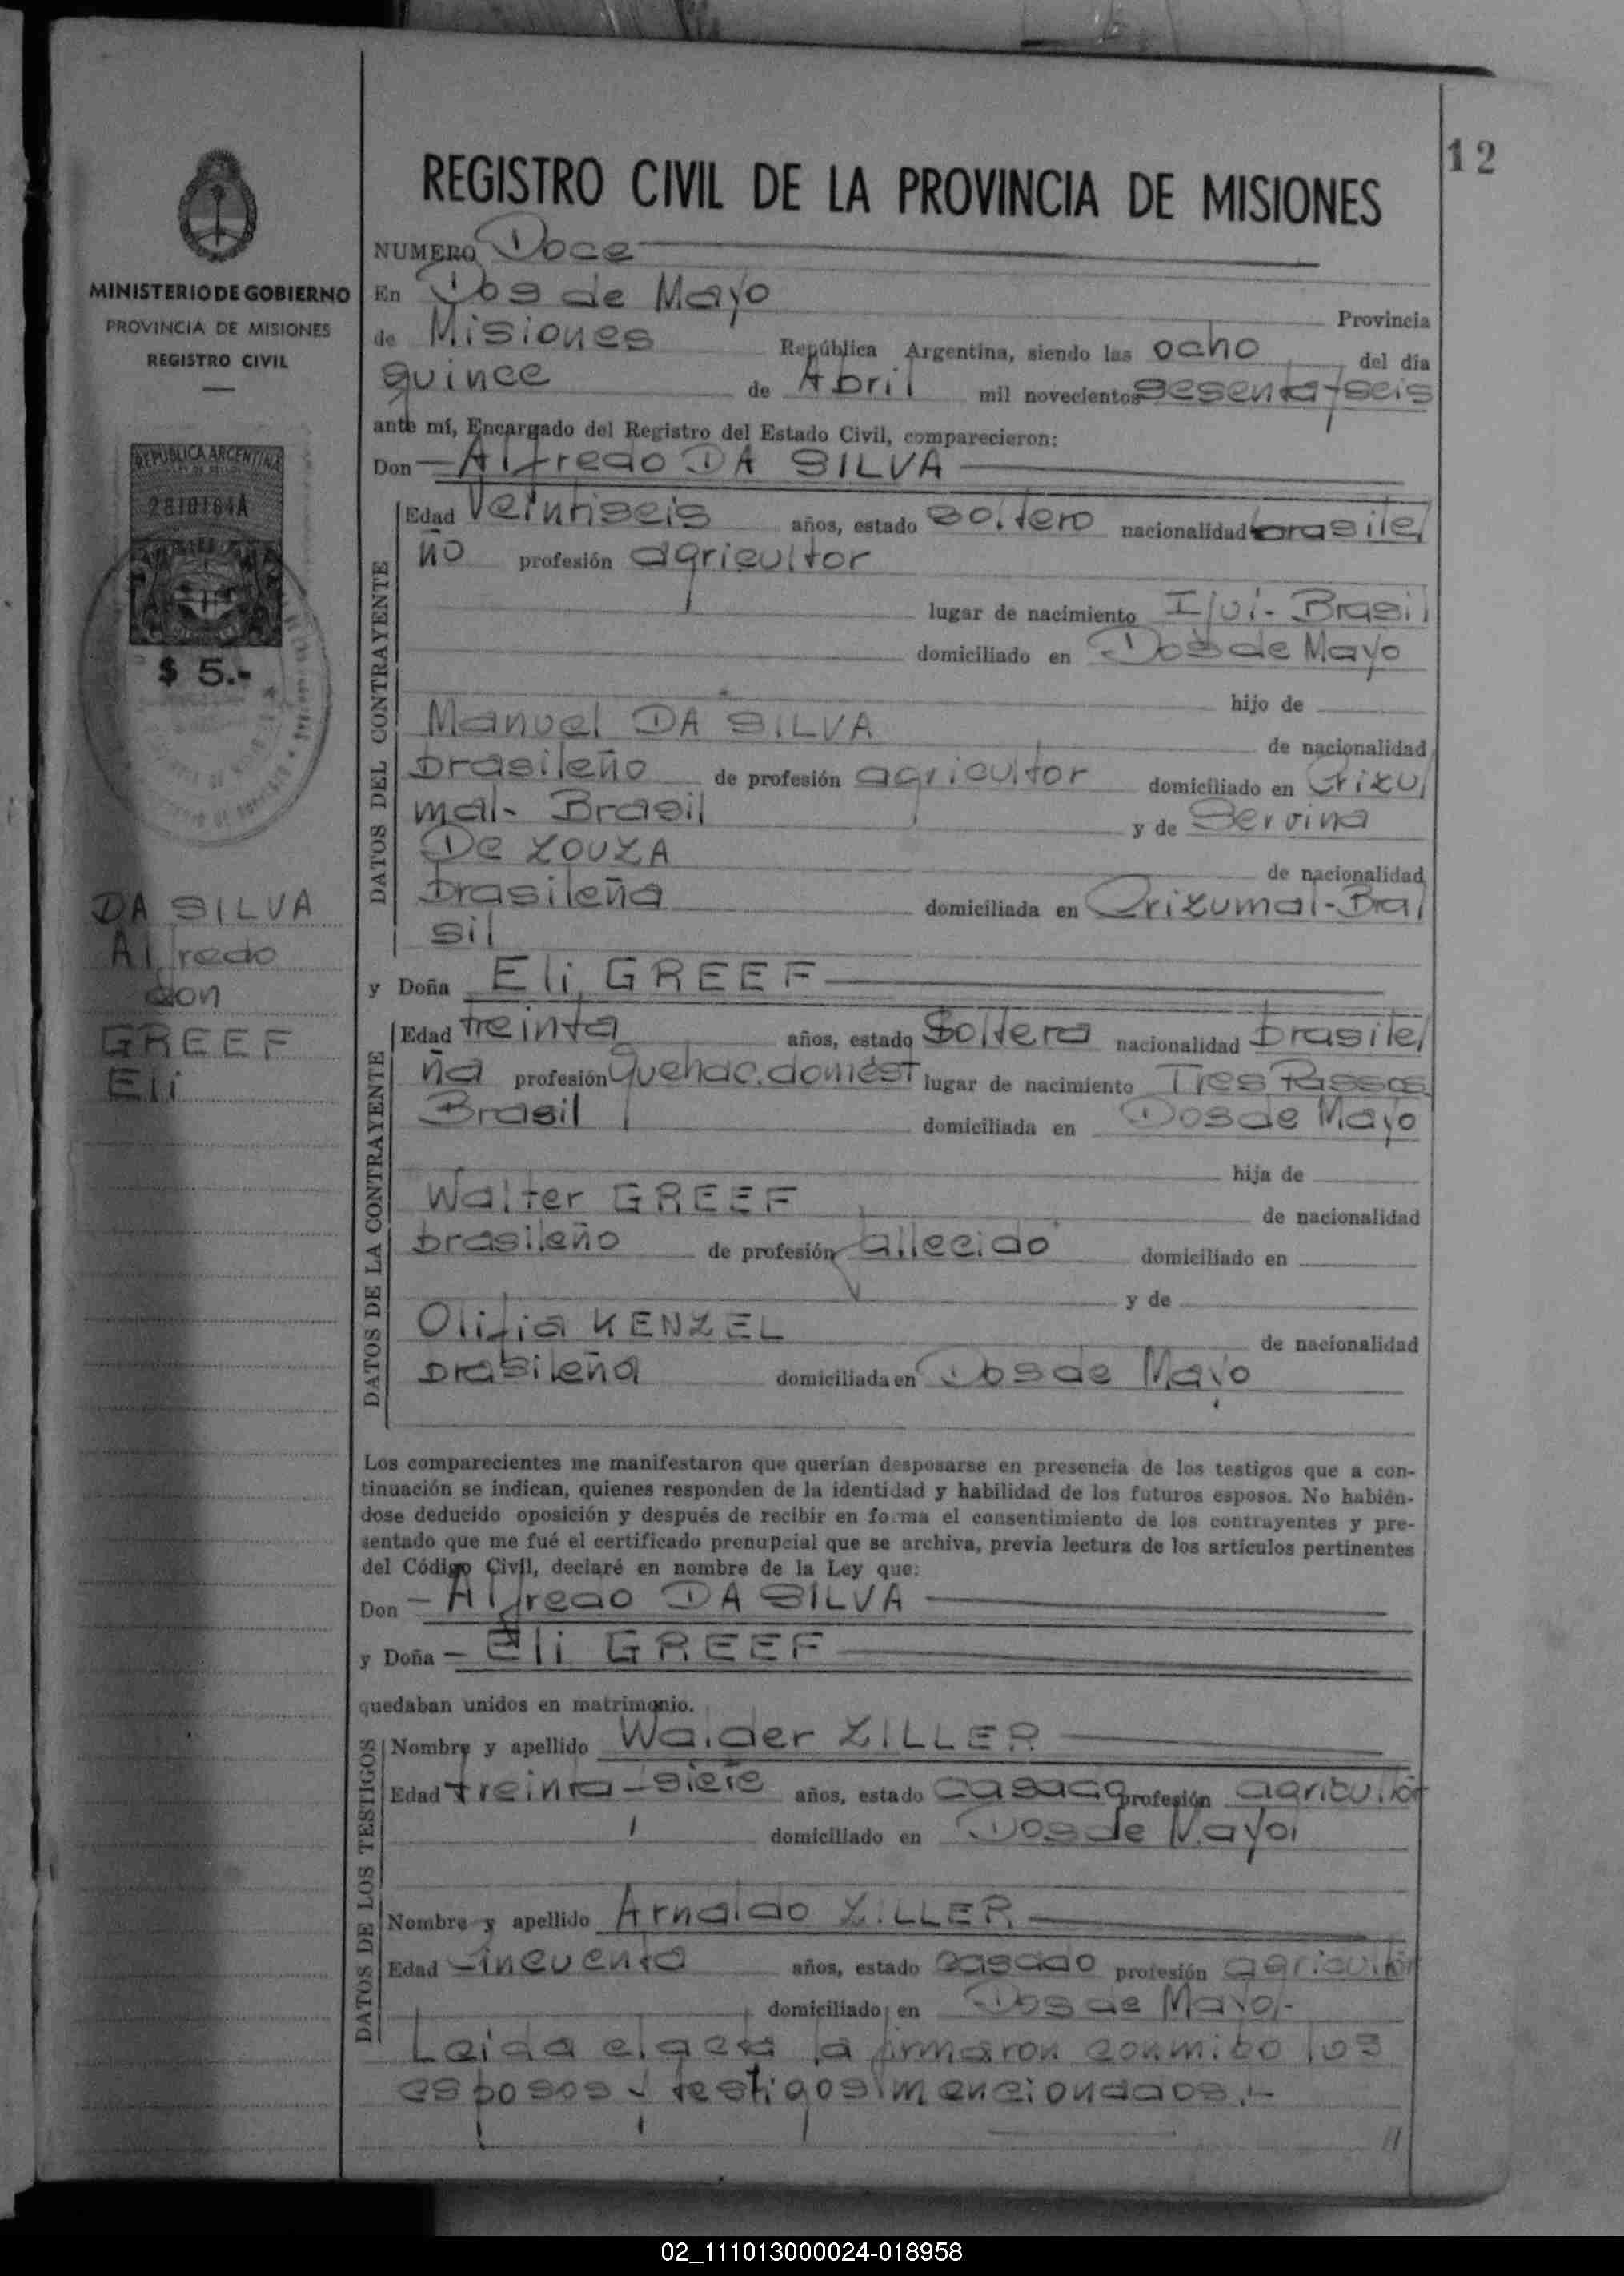 12
REGISTRO CIVIL DE LA PROVINCIA DE MISIONES
MINISTERIO DE GOBIERNO
PROVINCIA DE MISIONES
REGISTRO CIVIL
REPUBLICA ARGENTINA
$ 5.-
DA SILVA
Alfredo
con
GREEF
Eli
NUMERO Doce
En Dos de Mayo Provincia
de Misiones República Argentina, siendo las ocho del día
quince de Abril mil novecientos sesenta y seis
ante mí, Encargado del Registro del Estado Civil, comparecieron:
Don Alfredo DA SILVA
DATOS DEL CONTRAYENTE
Edad Veintiseis años, estado soltero nacionalidad brasile
ño profesión agricultor
lugar de nacimiento Ijuí - Brasil
domiciliado en Dos de Mayo
hijo de
Manuel DA SILVA de nacionalidad
brasileño de profesión agricultor domiciliado en Crizu
mal - Brasil y de
De ZOUZA de nacionalidad
brasileña domiciliada en Crizumal - Bra
sil
y Doña Eli GREEF
DATOS DE LA CONTRAYENTE
Edad treinta años, estado Soltera nacionalidad brasile
ña profesión Quehac. domést lugar de nacimiento Tres Passos
Brasil domiciliada en Dos de Mayo
hija de
Walter GREEF de nacionalidad
brasileño de profesión fallecido domiciliado en
y de
Olifia KENZEL de nacionalidad
brasileña domiciliada en Dos de Mayo
Los comparecientes me manifestaron que querían desposarse en presencia de los testigos que a con-
tinuación se indican, quienes responden de la identidad y habilidad de los futuros esposos. No habién-
dose deducido oposición y después de recibir en forma el consentimiento de los contrayentes y pre-
sentado que me fué el certificado prenupcial que se archiva, previa lectura de los artículos pertinentes
del Código Civil, declaré en nombre de la Ley que:
Don - Alfredo DA SILVA
y Doña - Eli GREEF
quedaban unidos en matrimonio.
DATOS DE LOS TESTIGOS
Nombre y apellido Walder ZILLER
Edad treinta-siete años, estado casado profesión agricultor
domiciliado en Dos de Mayo
Nombre y apellido Arnaldo ZILLER
Edad cincuenta años, estado casado profesión agricultor
domiciliado en Dos de Mayo.-
Leida el acta la firmaron conmigo los
esposos y testigos mencionados.-
02_111013000024-018958